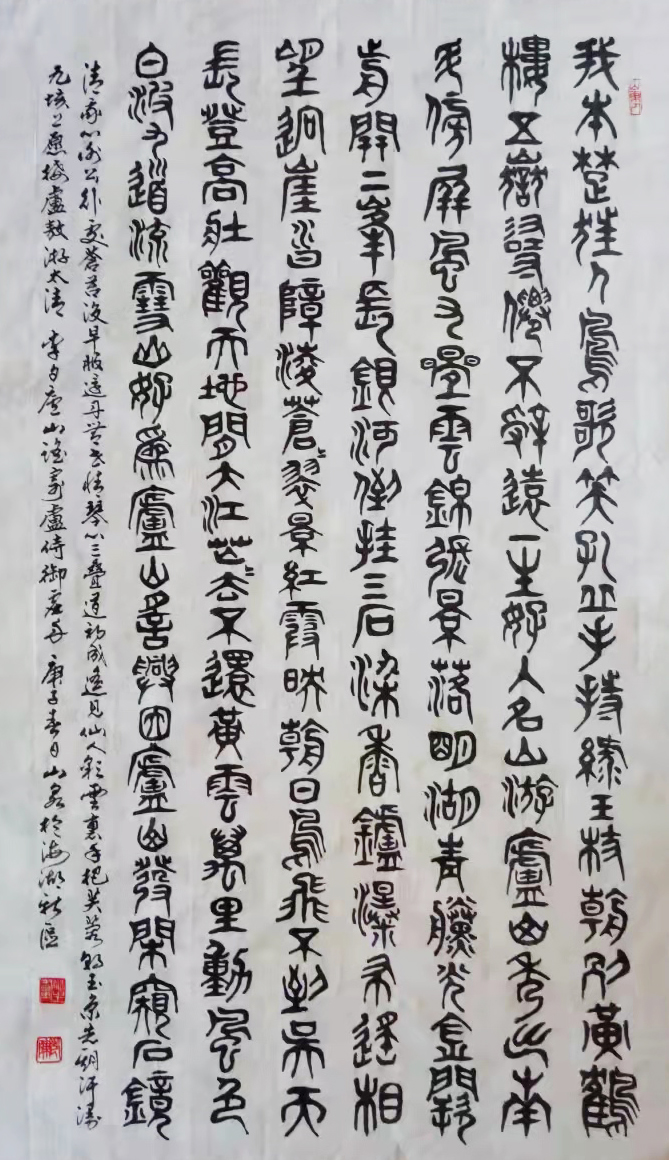 我本楚狂人鳳歌笑孔丘手持綠玉杖朝別黃鶴
樓五嶽尋僊不辭遠一生好入名山游廬山秀出南
斗傍屏風九疊雲錦張景落明湖青黛光金闕
前開二峯長銀河倒挂三石梁香鑪瀑布遙相
望迥崖沓嶂凌蒼〻翠景紅霞映朝日鳥飛不到吳天
長登高壯觀天地間大江茫〻去不還黃雲萬里動風色
白波九道流雪山好為廬山謠興因廬山發閑窺石鏡
清我心謝公行處蒼苔沒早服還丹無世情琴心三疊道初成遙見仙人彩雲裏手把芙蓉朝玉京先期汗漫
九垓上愿接盧敖游太清 李白廬山謠寄盧侍御虛舟 庚子春日山泉於海湖新區